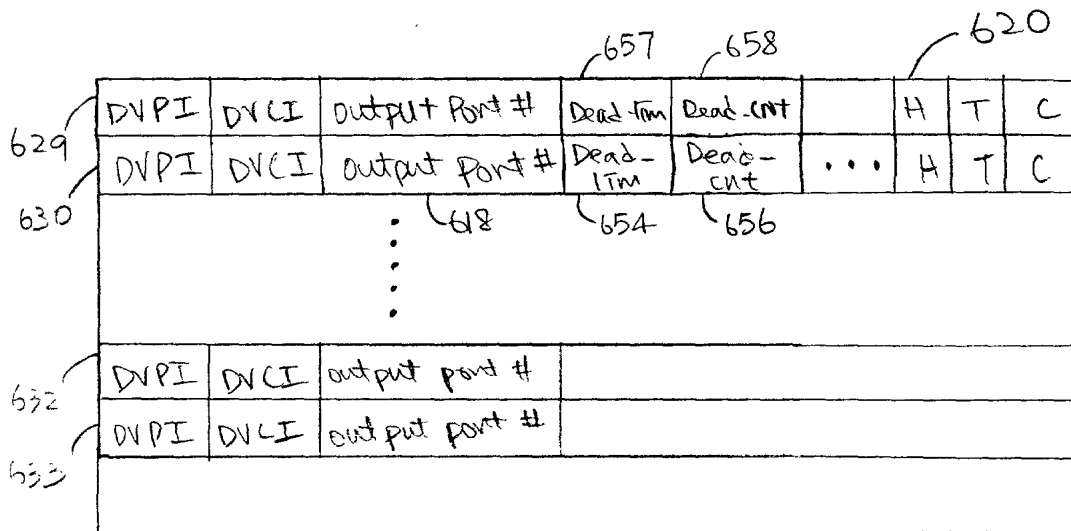 657 658 620
629 DVPI DVCI output Port # Dead-Tim Dead-CNT H T C
630 DVPI DVCI output Port # Dead-Tim Dead-cnt ... H T C
618 654 656
632 DVPI DVCI output port #
633 DVPI DVCI output port #